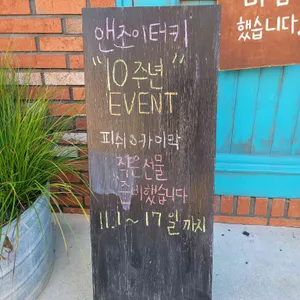 앤조이터키
"10주년"
EVENT
피쉬&카이막
작은선물
준비했습니다
11.1~17일까지
했습니다.